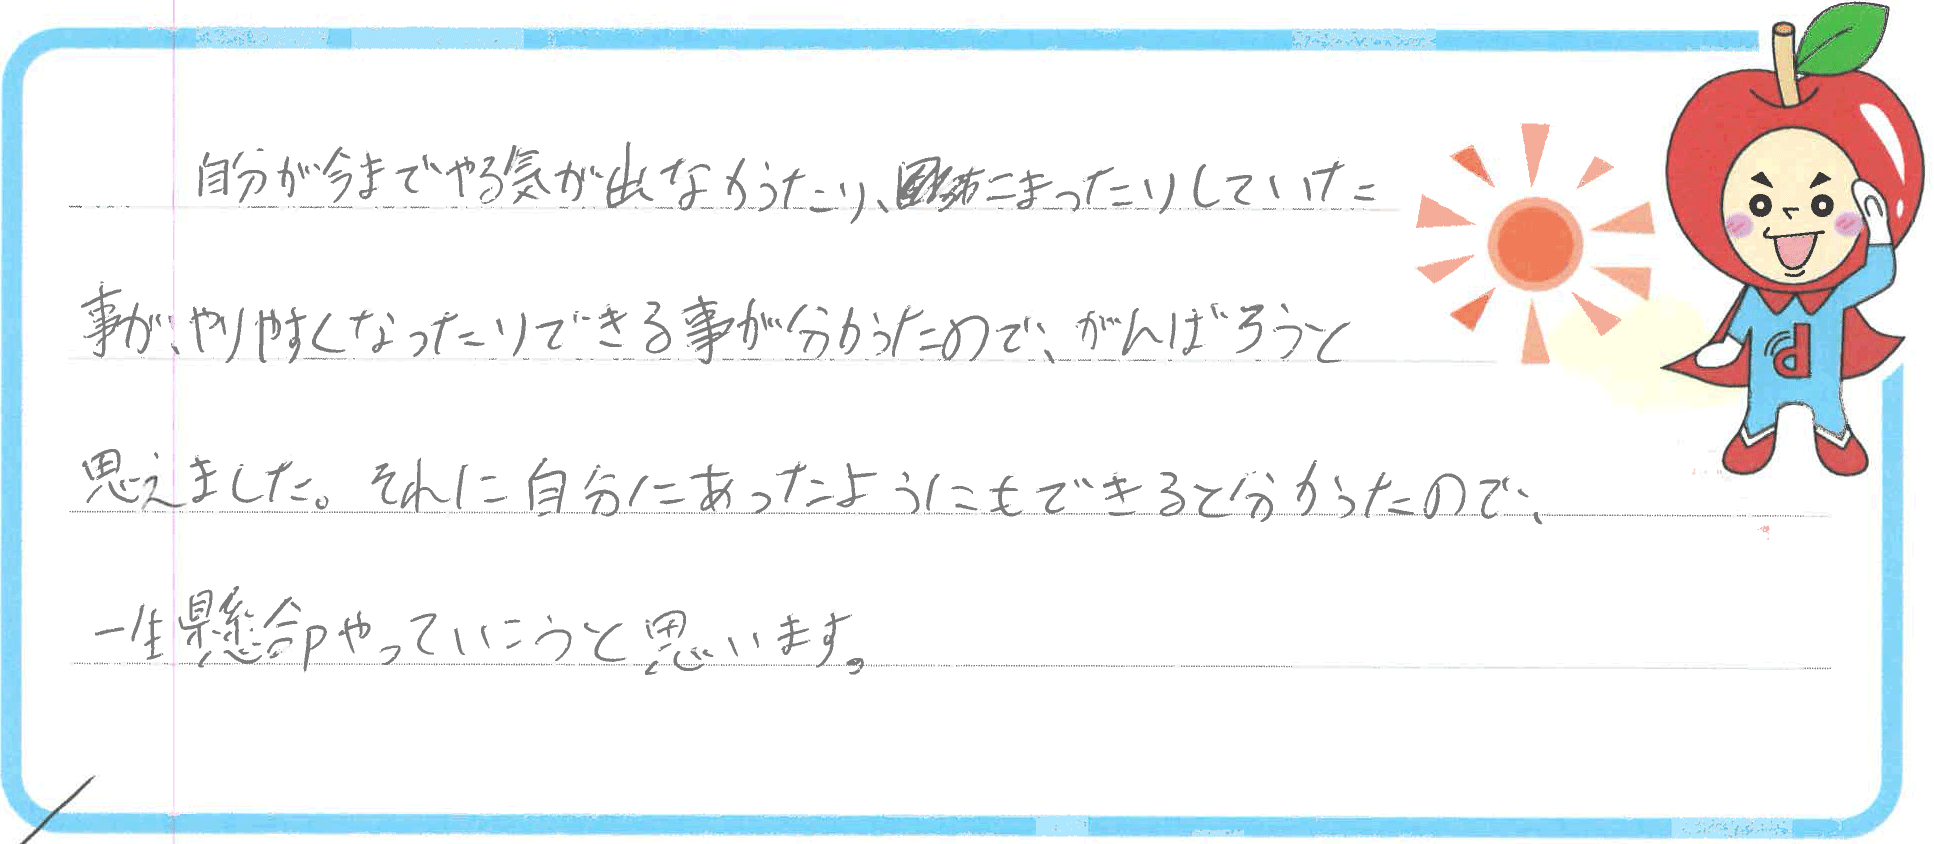 自分が今までやる気が出なかったり、こまったりしていた
事が、やりやすくなったりできる事が分かったので、がんばろうと
思えました。それに自分にあったようにもできると分かったので、
一生懸命やっていこうと思います。